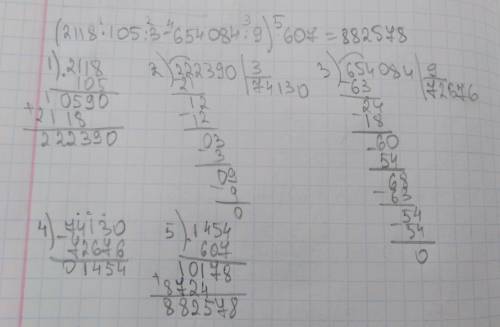 (2118 · 105 : 3 - 654084 : 9) · 607 = 882578
1) 2118
105
10590
+ 2118
222390
2) 222390 | 3
21 | 74130
12
- 12
03
- 3
09
- 9
0
3) 654084 | 9
- 63 | 72676
24
- 18
- 60
54
68
- 63
54
- 54
0
4) - 74130
72676
01454
5) 1454
607
10178
+ 8724
882578